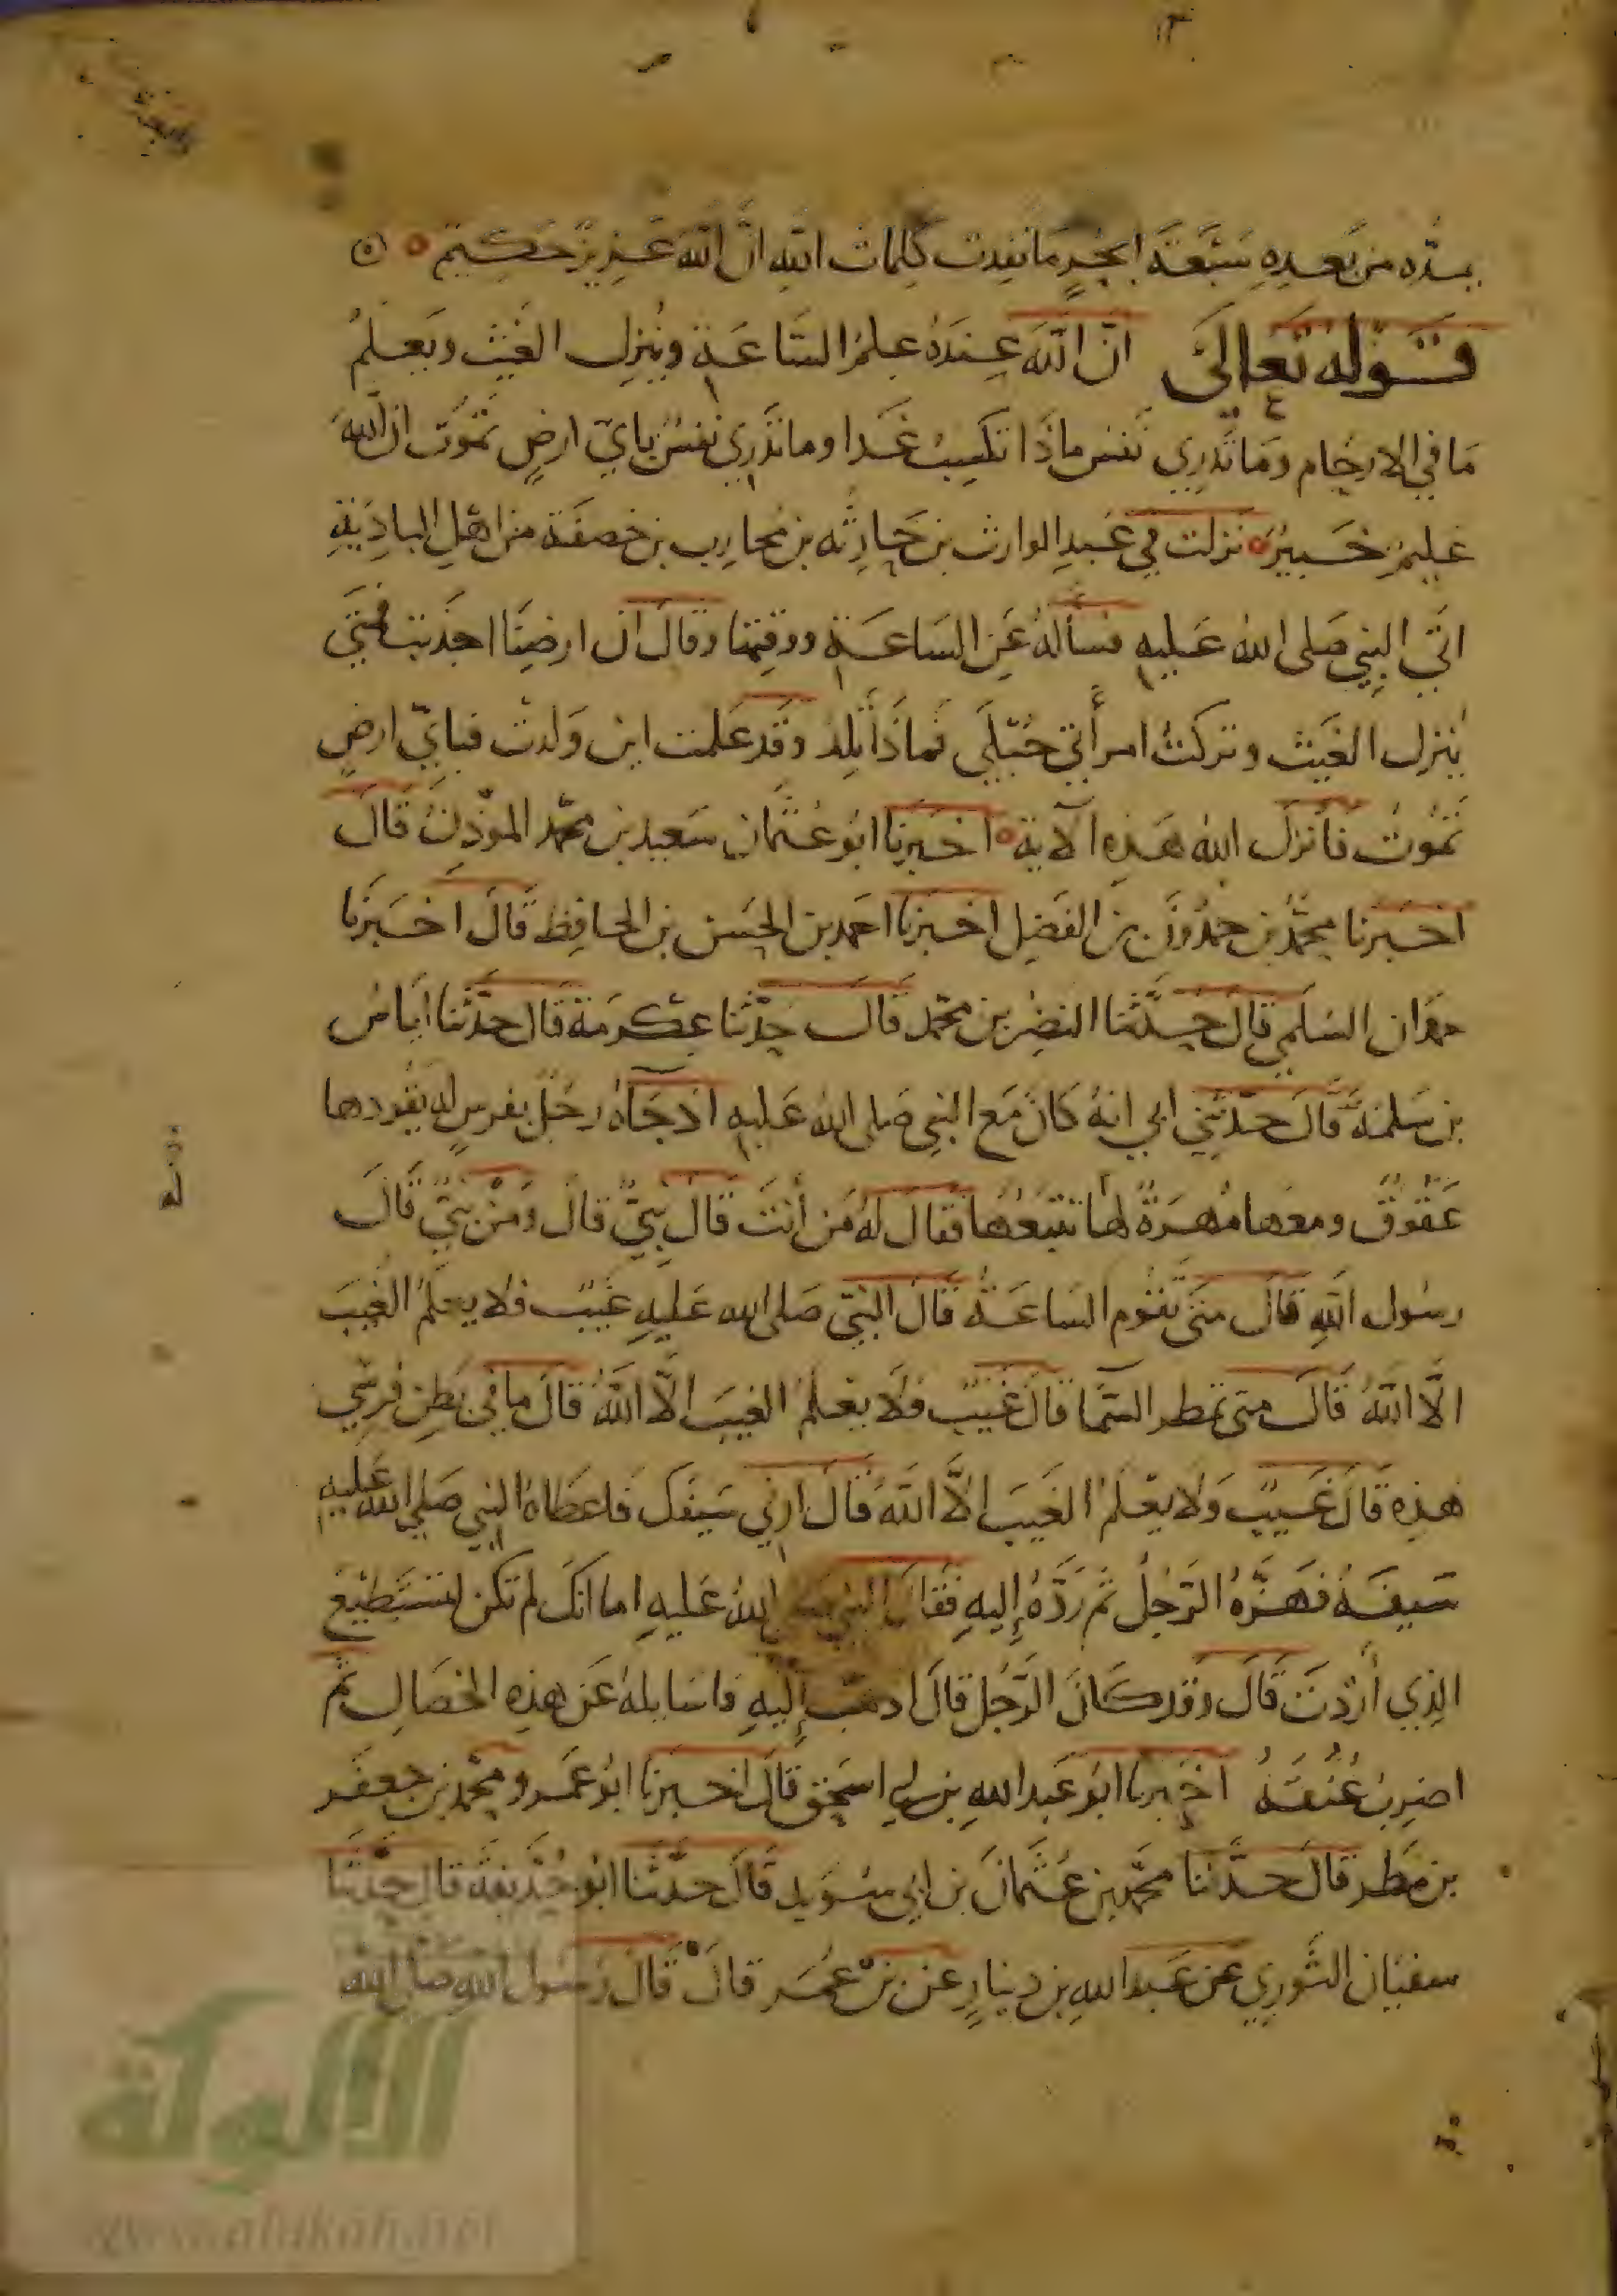 يمدّه من بَعده سَبْعَة ابحُرٍ مَا نفِدت كلِمات الله انّ الله عَزيزٌ حَكيم
قَولهُ تعَالىَ انّ اللهَ عِندَهُ علمُ السَّاعَةِ ويُنزِل الغَيث ويَعلمُ
مَا في الارحَام ومَا تَدرِي نَفس ماذَا تكسِبُ غَدا وما تدري نفسٌ بايّ ارضٍ تمُوت ان اللهَ
عَليمٌ خَبيرٌ نزلت في عَبدِ الوارث بن حَارِثه بن مُحارب بن خصفَة من اهلِ البادِيَةِ
اتَى النبي صَلى اللهُ عَليهِ فسألهُ عَن السَاعَةِ ووقتِها وقالَ ان ارضِنَا اجدَبَت فمتَى
يُنزل الغَيث وتركتُ امرأتي حُبْلَى فَماذَا تَلِدُ وقَد عَلمت اين وَلدتُ فبايّ ارضٍ
تَمُوتُ فَانزلَ اللهُ هَذِه الآية اخبَرنا ابُو عُثمان سَعيد بن محمَّد المؤذِنُ قَالَ
اخبَرنا محمّدُ بن حمدُونَ بن الفَضِل اخبَرنا احمَد بن الحَسَن بن الحافِظ قالَ اخبَرنا
حمدَان السُلمي قالَ حَدَّثنا النضرُ بن محمَّد قَالَ حدّثنا عِكرمَة قَال حدَّثنا ايَاسُ
بن سَلمَة قَالَ حدّثَني ابي انهُ كَانَ مَعَ النبي صَلى اللهُ عَليهِ اذ جَآهُ رجُلٌ بفرسٍ له يقُودها
عَقُوقٌ ومعَها مُهرَةٌ لَها تتبَعُها فقالَ لهُ مَن أنتَ قالَ نَبيٌّ قالَ ومَنْ نَبيٌّ قَالَ
رسُول اللهِ قالَ مَتَى تقُوم السَاعَةُ قَالَ النبيّ صَلى الله عَليهِ غَيبٌ ولا يعلمُ الغَيبَ
الَّا اللهُ قَالَ متى تمطر السَّما قَالَ غَيْبٌ ولَا يعْلمُ الغيبَ الَّا اللهُ قالَ ما في بَطنِ فَرسِي
هَذِه قالَ غَيبٌ وَلا يعْلمُ الغَيبَ الَّا اللهُ قالَ ارِني سَيفَك فَاعطَاهُ النبي صَلى الله عَليهِ
سَيفَهُ فهَزَّهُ الرَّجُلُ ثم رَدَّهُ إليهِ فَقالَ النبي صلى اللهُ عَليهِ اما انكَ لم تكن لتستَطيْعَ
الذِي أرَدتَ قالَ وقد كَانَ الرَّجُل قالَ اذهَب إليهِ فاسَايلهُ عَن هذِهِ الخصَالِ ثُم
اضربُ عُنقَهُ اخبَرنا ابُو عَبد اللهِ بن ابي اسحق قَالَ اخبَرنا ابُو عَمرو محمّد بن جعفَر
بن مَطر قالَ حدَّثنا محمَّد بن عُثمانَ بن ابي سُوَيد قَالَ حدَّثنا ابُو حُذَيفَة قالَ حدَّثنَا
سفيَان الثَّوري عن عَبد اللهِ بن دينارٍ عن بن عُمَر قالَ قَالَ رَسُول اللهِ صَلى الله
الألوكة
www.alukah.net